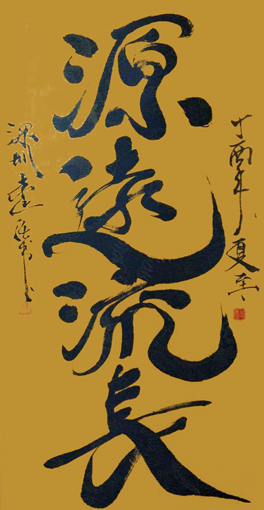 源遠流長
丁酉年夏至
深圳